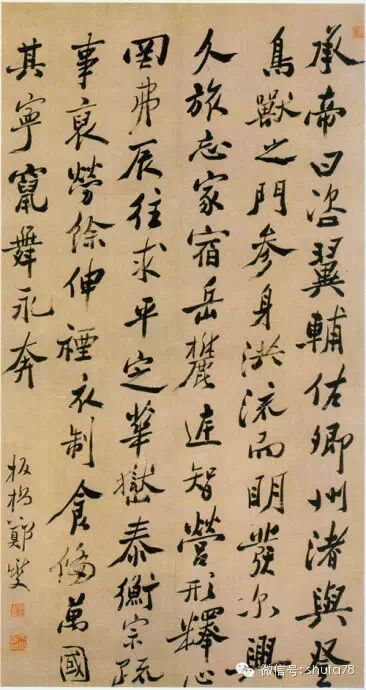 承帝曰咨翼輔佑卿州渚與登
鳥獸之門参身洪流而明發尔興
久旅忘家宿岳麓庭智營形釋心
罔弗辰往求平定華嶽泰衡宗疏
事裒勞餘伸禋衣制食備萬國
其寧竄舞永奔
板橋鄭燮
微信号: shufa78